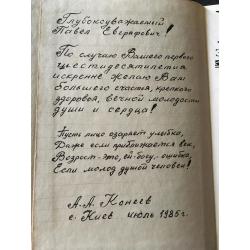 Глубокоуважаемый
Павел Евграфович!
По случаю Вашего первого
шестидесятилетия
искренне желаю Вам
большого счастья, крепкого
здоровья, вечной молодости
души и сердца!
Пусть лицо озаряет улыбка,
Даже если приближается век,
Возраст - это, ей-богу, ошибка,
Если молод душой человек!
А.А. Конеев
г. Киев июль 1985г.